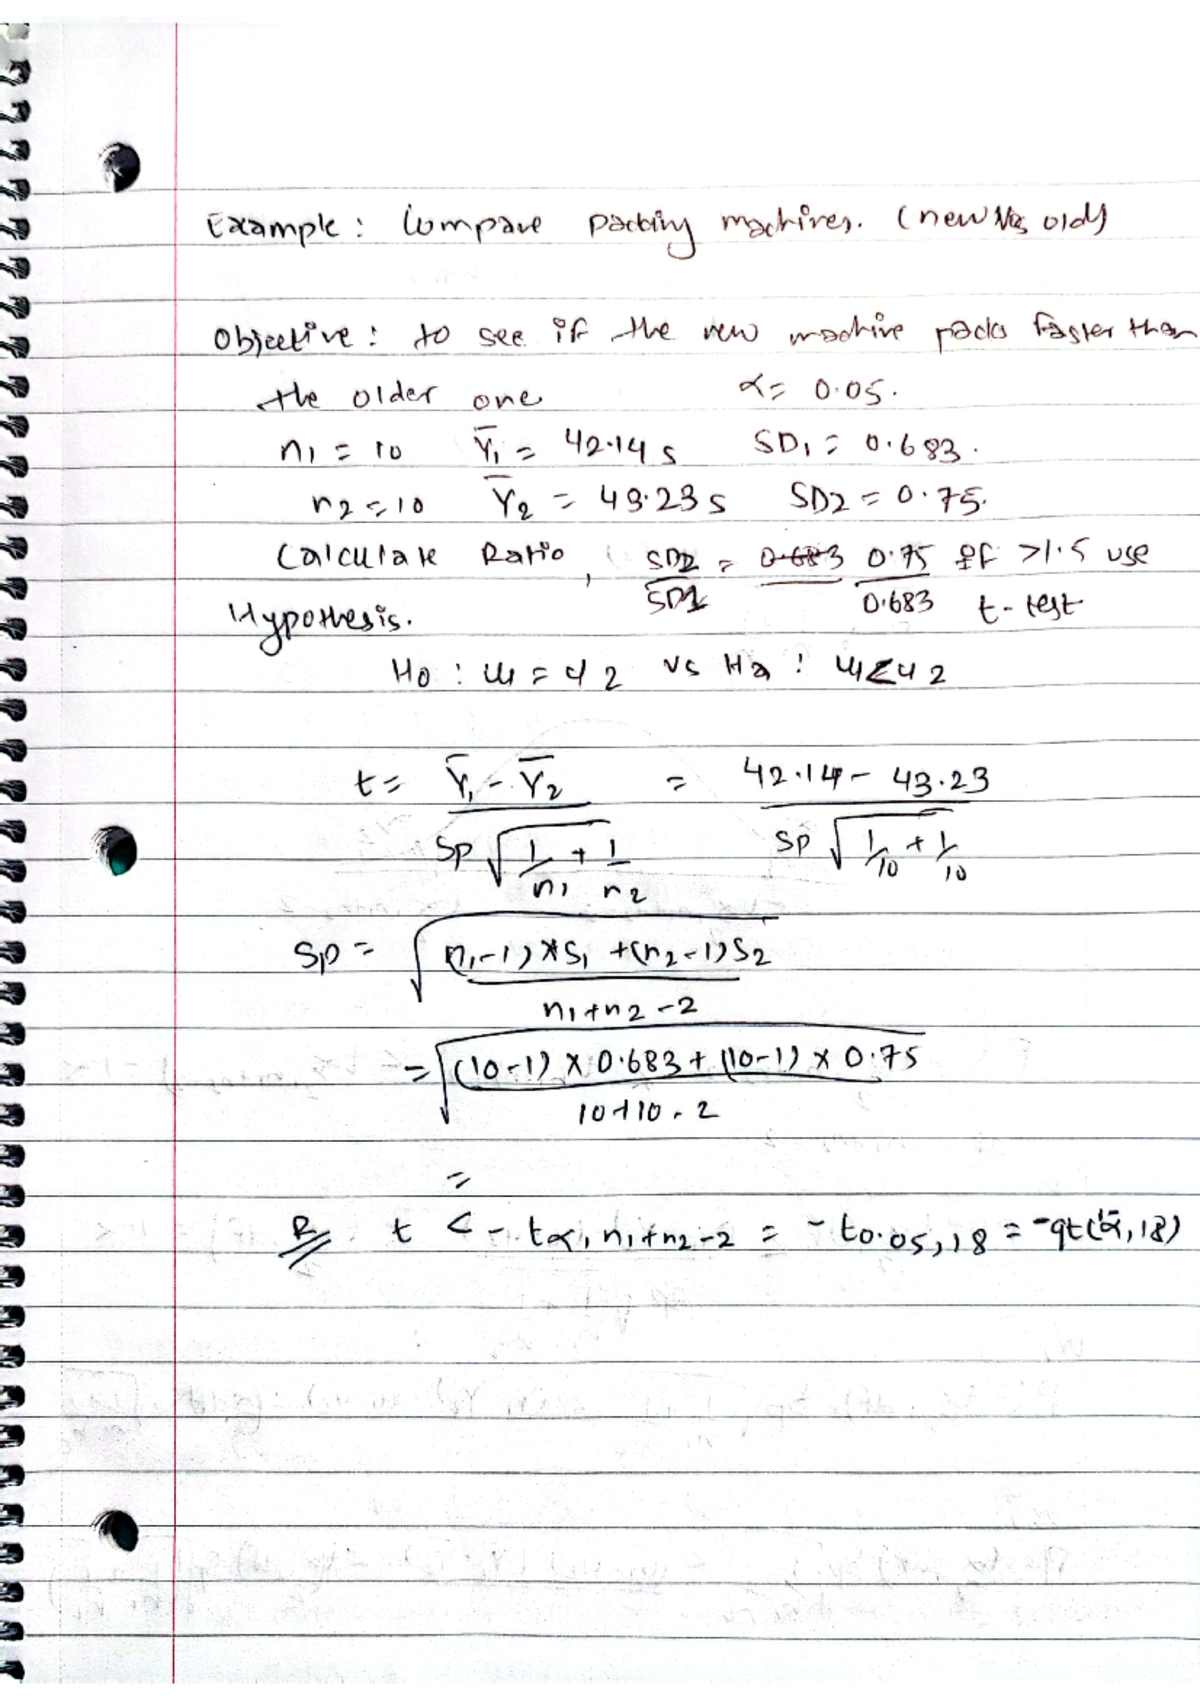 Example: Compare packing machines. (new Vs old)
Objective: to see if the new machine packs faster than
the older one α = 0.05.
n1 = 10 Ȳ1 = 42.14 s SD1 = 0.683.
n2 = 10 Ȳ2 = 43.23 s SD2 = 0.75.
Calculate Ratio, SD2/SD1 = 0.683 0.75/0.683 If >1.5 use t-test
Hypothesis.
H0 : μ1 = μ2 vs Ha : μ1 < μ2
t = (Ȳ1 - Ȳ2) / (Sp √(1/n1 + 1/n2)) = (42.14 - 43.23) / (Sp √(1/10 + 1/10))
Sp = √(((n1-1) * S1 + (n2-1) S2) / (n1+n2-2))
= √(((10-1) × 0.683 + (10-1) × 0.75) / (10+10-2))
=
R// t < - tα, n1+n2-2 = - t0.05,18 = -qt(1-α, 18)